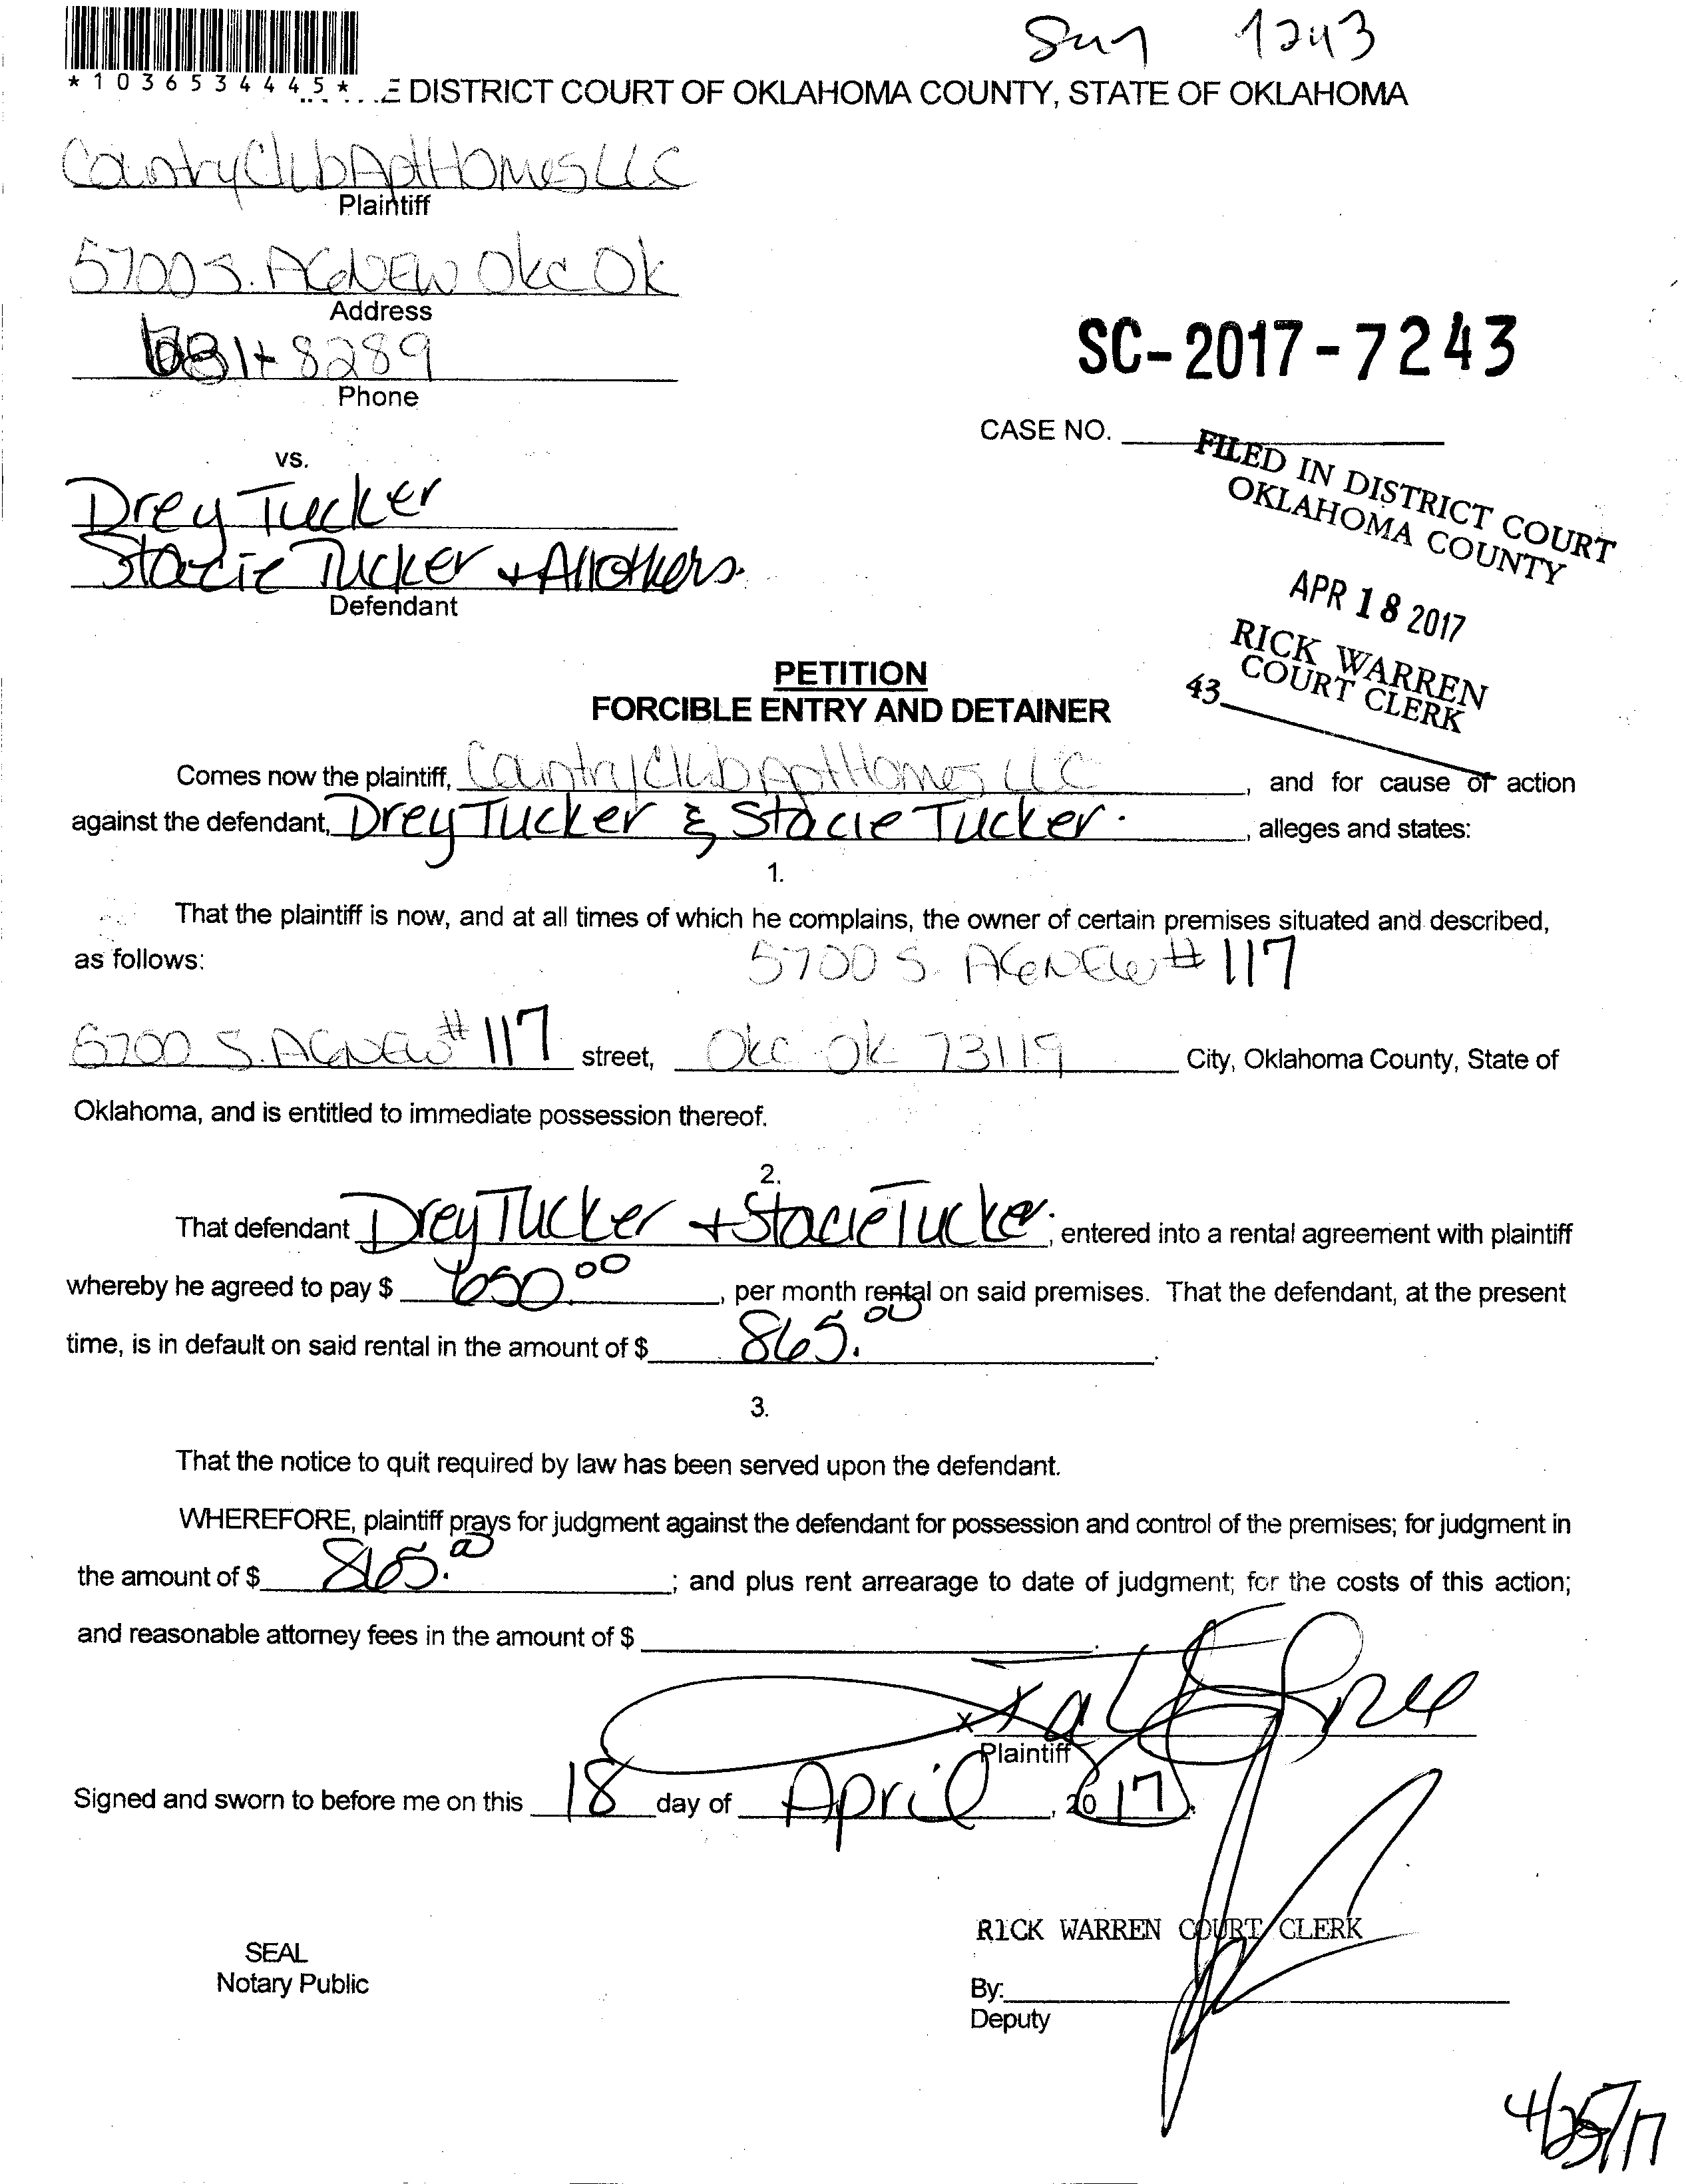 1243
*1036534445*
E DISTRICT COURT OF OKLAHOMA COUNTY, STATE OF OKLAHOMA
Country Club Apt Homes LLC
Plaintiff
5700 S. AGNEW Okc Ok
Address
8289
Phone
SC-2017-7243
CASE NO.
FILED IN DISTRICT COURT
OKLAHOMA COUNTY
APR 18 2017
RICK WARREN
COURT CLERK
43
vs.
Drey Tucker
Stacie Tucker + All others.
Defendant
PETITION
FORCIBLE ENTRY AND DETAINER
Comes now the plaintiff, Country Club Apt Homes LLC, and for cause of action
against the defendant, Drey Tucker & Stacie Tucker., alleges and states:
1.
That the plaintiff is now, and at all times of which he complains, the owner of certain premises situated and described,
as follows: 5700 S. AGNEW # 117
5700 S. AGNEW # 117 street, Okc Ok 73119 City, Oklahoma County, State of
Oklahoma, and is entitled to immediate possession thereof.
2.
That defendant Drey Tucker + Stacie Tucker, entered into a rental agreement with plaintiff
whereby he agreed to pay $ 650.00, per month rental on said premises. That the defendant, at the present
time, is in default on said rental in the amount of $ 865.00.
3.
That the notice to quit required by law has been served upon the defendant.
WHEREFORE, plaintiff prays for judgment against the defendant for possession and control of the premises; for judgment in
the amount of $ 865.00; and plus rent arrearage to date of judgment; for the costs of this action;
and reasonable attorney fees in the amount of $
x
Plaintiff
Signed and sworn to before me on this 18 day of April, 2017.
RICK WARREN COURT CLERK
SEAL
Notary Public
By:
Deputy
4/25/17